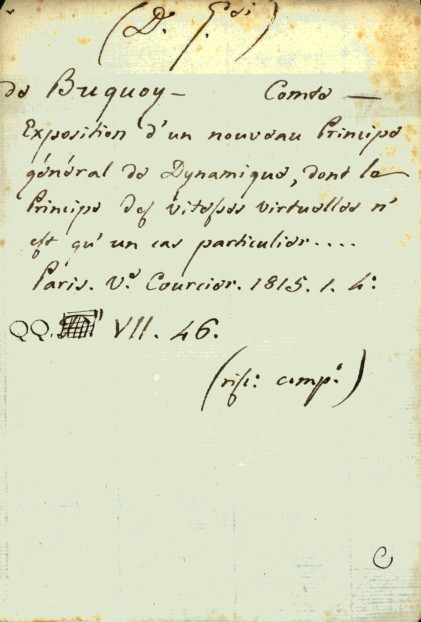 (D. G.di)
de Buquoy – Comte —
Exposition d'un nouveau Principe
général de Dynamique, dont le
Principe des vitesses virtuelles n'
est qu'un cas particulier....
Paris. V.e Courcier. 1815. 1. 4.o
QQ. VII. 46.
(risc. comp.o)
C